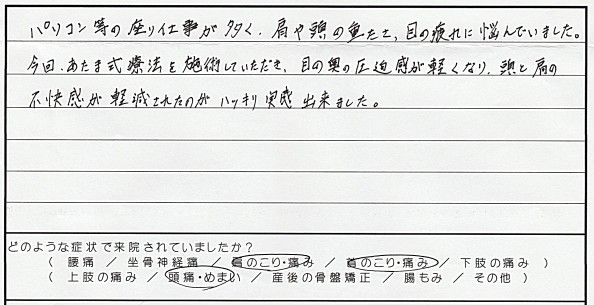 パソコン等の座り仕事が多く、肩や頭の重たさ、目の疲れに悩んでいました。
今回、あたま式療法を施術していただき、目の奥の圧迫感が軽くなり、頭と肩の
不快感が軽減されたのがハッキリ実感出来ました。
どのような症状で来院されていましたか？
（ 腰痛 ／ 坐骨神経痛 ／ 肩のこり・痛み ／ 首のこり・痛み ／ 下肢の痛み ）
（ 上肢の痛み ／ 頭痛・めまい ／ 産後の骨盤矯正 ／ 腸もみ ／ その他 ）